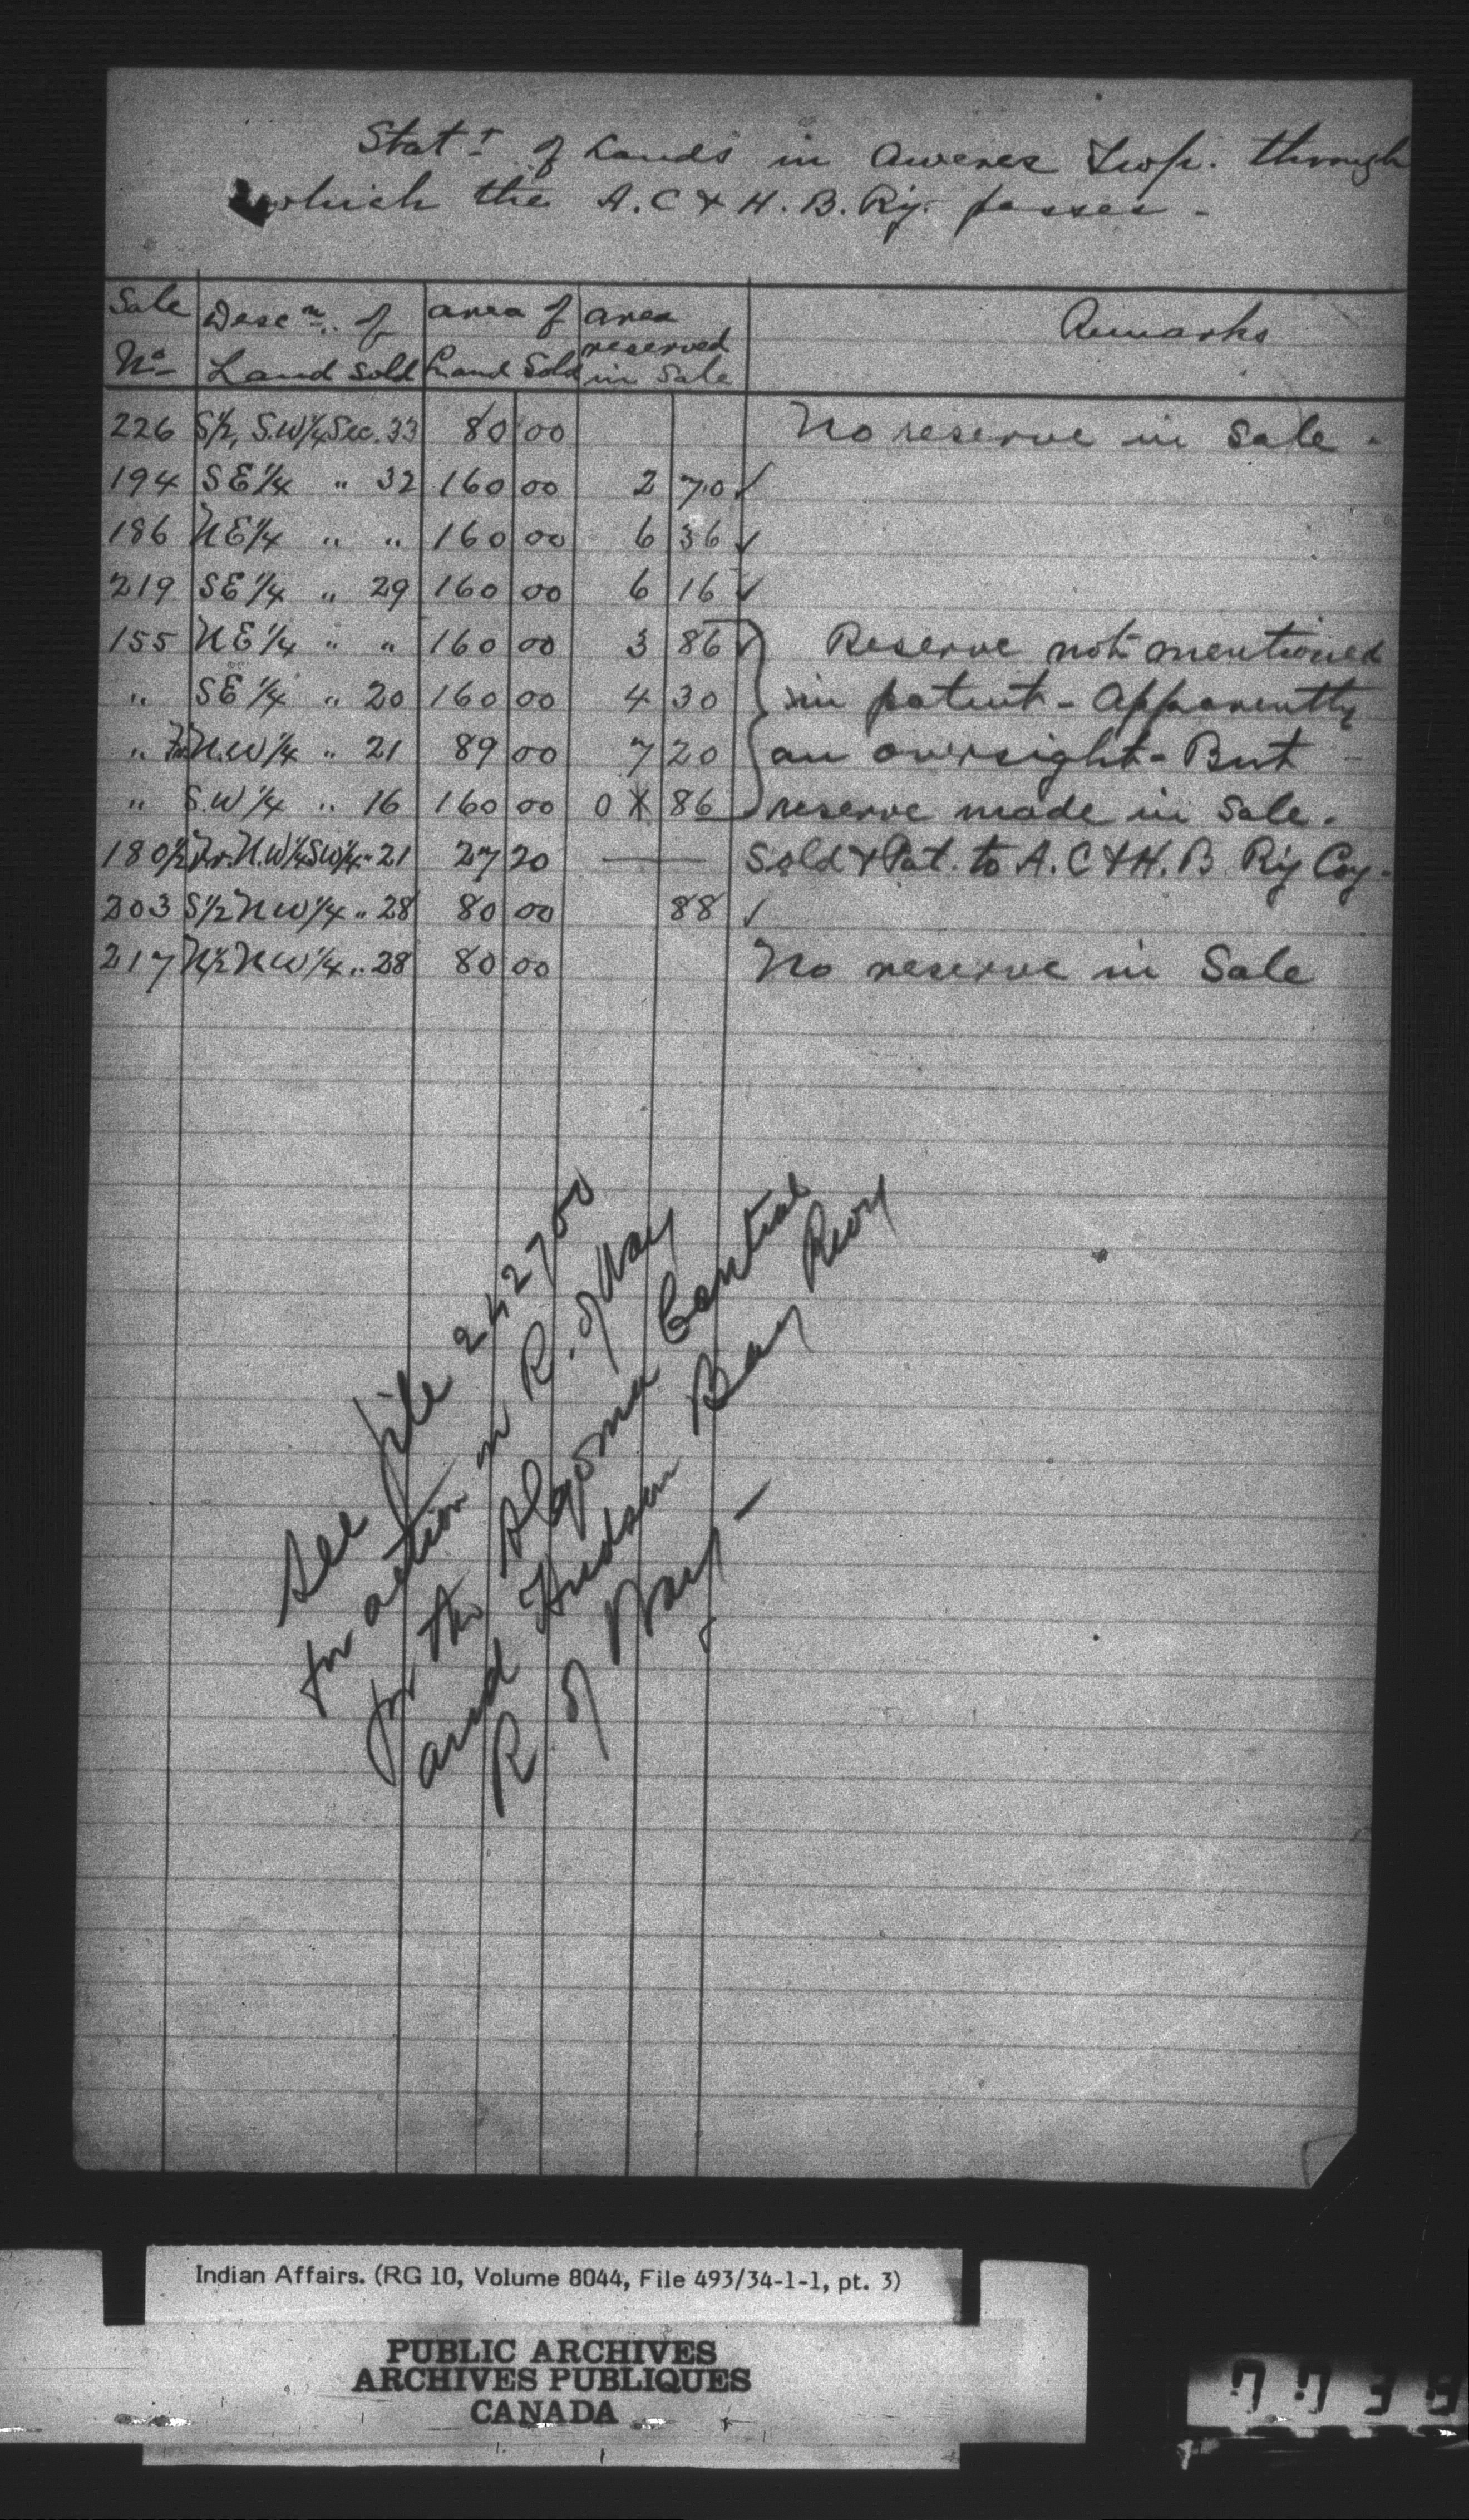 Stat.t of Lands in Awenes Twp. through
which the A.C & H.B. Ry. passes -
Sale No Descn. of Land sold area of Land Sold area reserved in Sale Remarks
226 S½, S.W¼ Sec. 33 80 00 No reserve in Sale -
194 SE¼ " 32 160 00 2 70 ✓
186 NE¼ " " 160 00 6 36 ✓
219 SE¼ " 29 160 00 6 16 ✓
155 NE¼ " " 160 00 3 86 ✓ Reserve not mentioned
" SE¼ " 20 160 00 4 30 in patent - Apparently
" Fr N.W¼ " 21 89 00 7 20 an oversight - But
" S.W¼ " 16 160 00 0 86 reserve made in Sale -
180½ Fr. N.W¼ SW¼ " 21 27 20 — Sold & Pat. to A.C & H.B Ry Coy.
203 S½ NW¼ " 28 80 00 88 ✓
217 N½ NW¼ " 28 80 00 No reserve in Sale
See file 242700
for action in R. of Way
for the Algoma Central
and Hudson Bay Rwy
R. of Way -
Indian Affairs. (RG 10, Volume 8044, File 493/34-1-1, pt. 3)
PUBLIC ARCHIVES
ARCHIVES PUBLIQUES
CANADA
7738